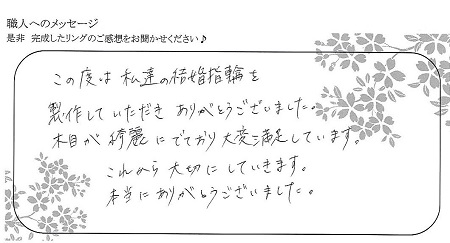 職人へのメッセージ
是非 完成したリングのご感想をお聞かせください♪
この度は私達の結婚指輪を
製作していただきありがとうございました。
木目が綺麗にでており大変満足しています。
これから大切にしていきます。
本当にありがとうございました。